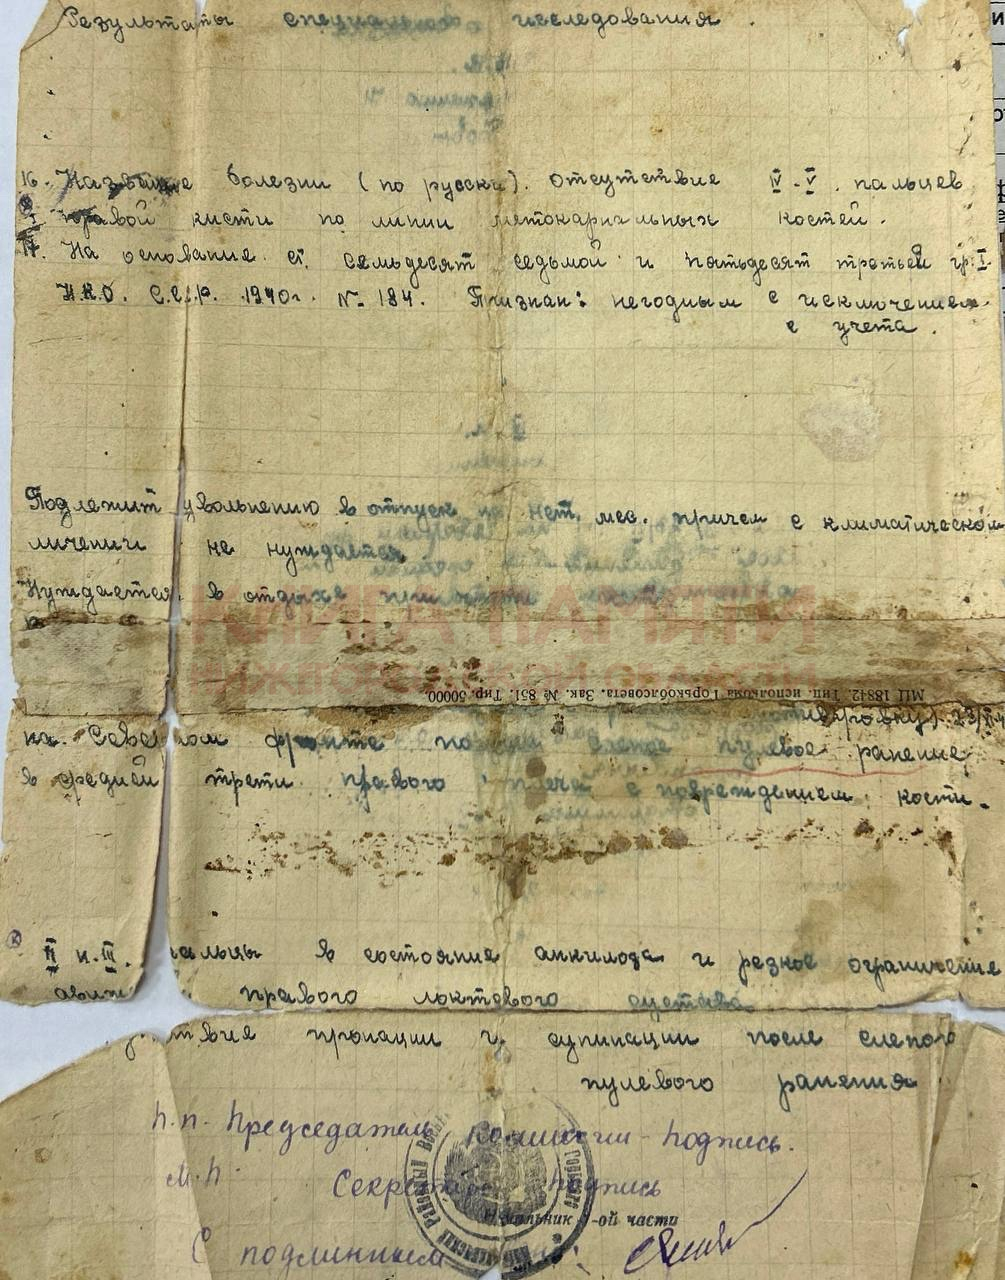 Результаты специального исследования.
16. Название болезни (по русски). отсутствие IV-V. пальцев
правой кисти по линии метокарпальных костей.
17. На основание ст. семьдесят седьмой и пятьдесят третьей гр. I
Н.К.О. С.С.С.Р. 1940г. №-184. Признан: негодным с исключением
с учета.
Подлежит увольнению в отпуск на нет. мес. причем с климатическом
личении не нуждается
Нуждается. в отдыхе
КНИГА ПАМЯТИ
НИЖЕГОРОДСКОЙ ОБЛАСТИ
МЦ 18842. Тип. исполкома Горькоблсовета. Зак. № 851. Тир. 50000.
на фронте слепое пулевое ранение
в средней трети правого плеча с повреждением кости.
II и III. пальцы в состояние анкилоза и резкое ограничение
правого локтевого сустава
пронации и супинации после слепого
пулевого ранения
п.п. Председатель Комиссии - подпись.
М.П. Секретарь подпись
Начальник -ой части
С подлинником